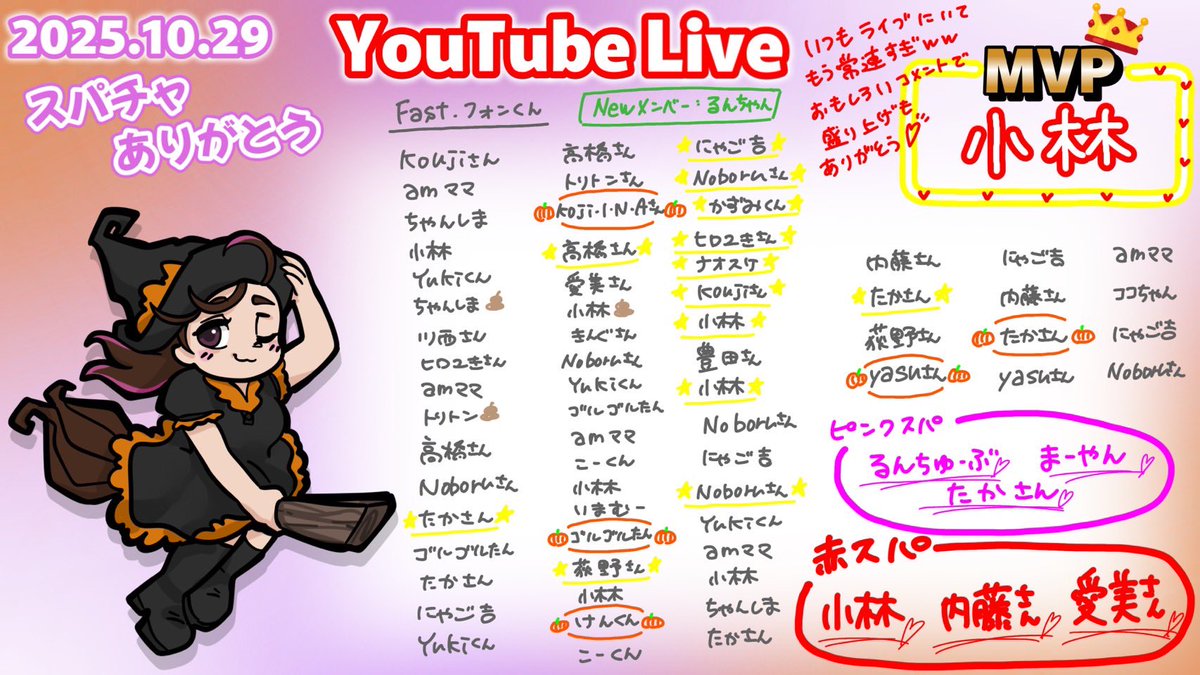 2025.10.29
スパチャ
ありがとう
YouTube Live
いつもライブにいて
もう常連すぎww
おもしろいコメントで
盛り上げも
ありがとう
MVP
小林
Fast.フォンくん
Newメンバー:るんちゃん
Koujiさん
amママ
ちゃんしま
小林
Yukiくん
ちゃんしま
ツ西さん
ヒロユきさん
amママ
トリトン
高橋さん
Noboruさん
たかさん
ゴルゴルたん
たかさん
にゃご吉
Yukiくん
高橋さん
トリトンさん
Koji・I・N・Aさん
高橋さん
愛美さん
小林
きんぐさん
Noboruさん
Yukiくん
ゴルゴルたん
amママ
こーくん
小林
いまむー
ゴルゴルたん
荻野さん
小林
けんくん
こーくん
にゃご吉
Noboruさん
かずみくん
ヒロユきさん
ナオスケ
Koujiさん
小林
豊田さん
小林
Noboruさん
にゃご吉
Noboruさん
Yukiくん
amママ
小林
ちゃんしま
たかさん
内藤さん
たかさん
荻野さん
yasuさん
にゃご吉
内藤さん
たかさん
yasuさん
amママ
ココちゃん
にゃご吉
Noboruさん
ピンクスパ
るんちゅーぶ まーやん
たかさん
赤スパ
小林 内藤さん 愛美さん